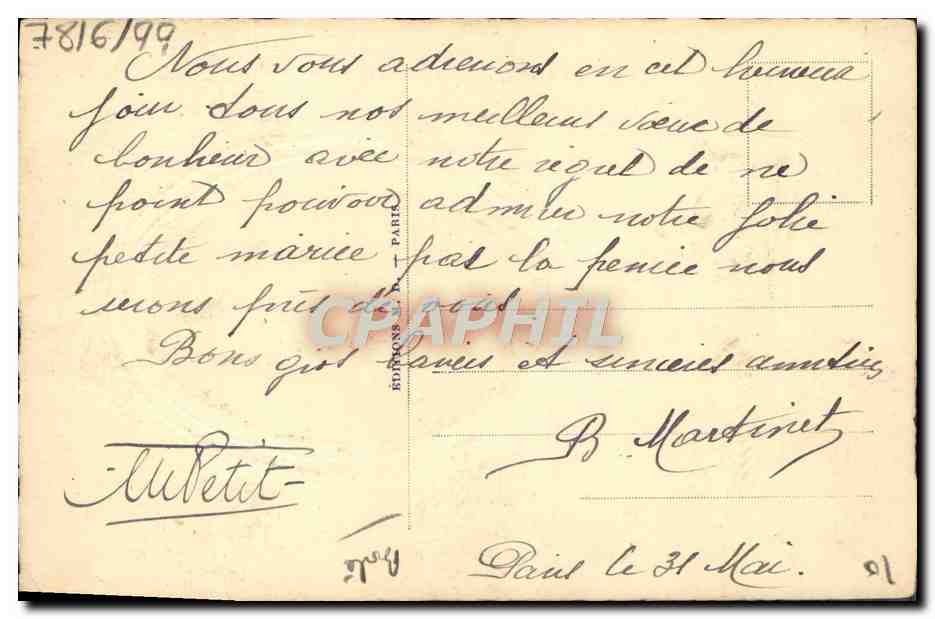 78/6/99
Nous vous adressons en cet heureux
jour tous nos meilleurs vœux de
bonheur avec notre regret de ne
point pouvoir admirer notre jolie
petite mariée par la pensée nous
serons près de vous
Bons gros baisers et sincères amitiés
B Martinet
Petit
Paris le 31 Mai.
EDITIONS - PARIS
CPAPHIL